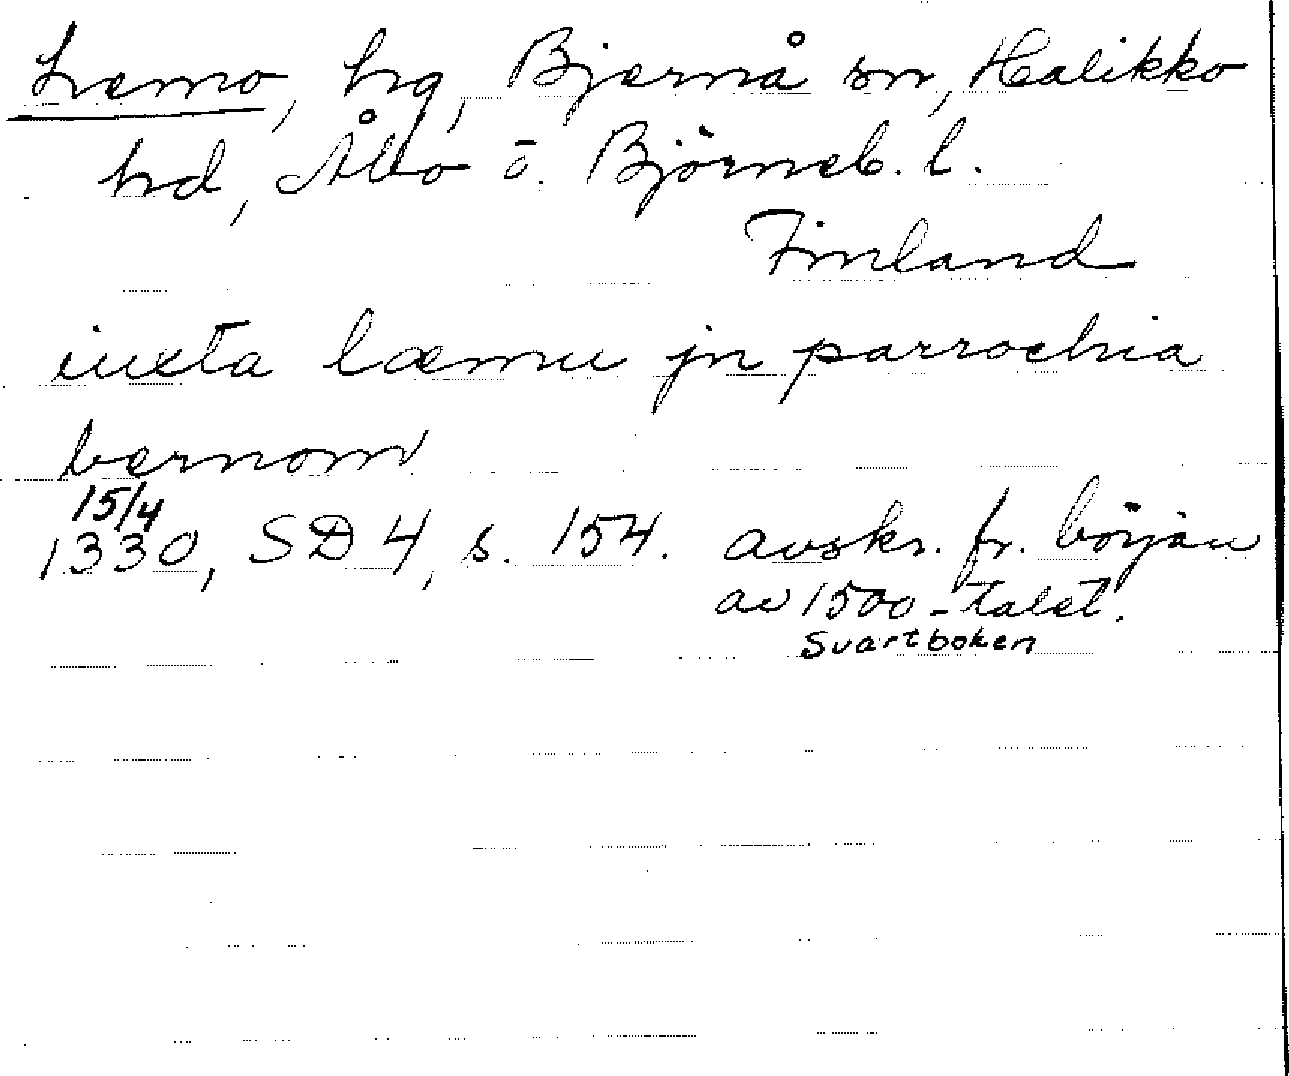 Lemo, hg, Bjernå sn, Halikko
hd, Åbo o. Björneb. l.
Finland
iuxta læmu jn parrochia
bernom
15/4
1330, SD 4, s. 154. avskr. fr. början
av 1500-talet.
Svartboken